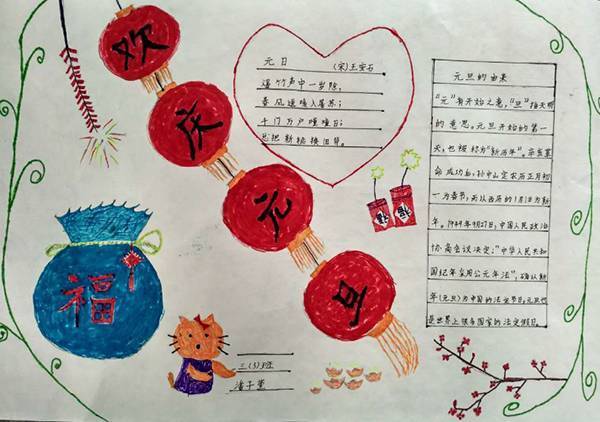 欢
庆
元
旦
元日 (宋)王安石
爆竹声中一岁除,
春风送暖入屠苏;
千门万户曈曈日;
总把新桃换旧符。
元旦的由来
"元"有开始之意,"旦"指天明
的意思。元旦开始的第一
天,也被称为"新历年"。辛亥革
命成功后,孙中山定农历正月初
一为春节,而以西历的1月1日为新
年。1949年9月27日,中国人民政治
协商会议决定:"中华人民共和
国纪年采用公元年法",确认新
年(元旦)为中国的法定节日。元旦也
是世界上很多国家的法定假日。
福
福
福
三(5)班